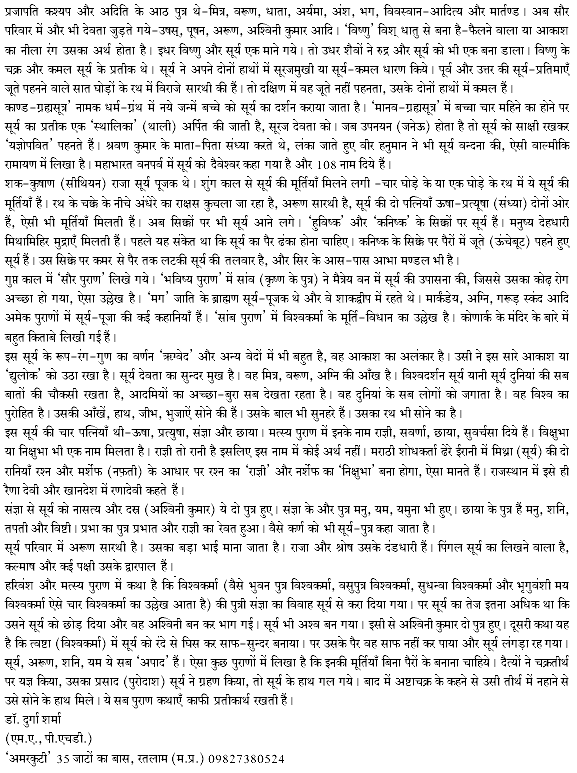 प्रजापति कश्यप और अदिति के आठ पुत्र थे-मित्र, वरूण, धाता, अर्यमा, अंश, भग, विवस्वान-आदित्य और मार्तण्ड। अब सौर
परिवार में और भी देवता जुड़ते गये-उषस्, पूषन, अरूण, अश्विनी कुमार आदि। 'विष्णु' विश् धातु से बना है-फैलने वाला या आकाश
का नीला रंग उसका अर्थ होता है। इधर विष्णु और सूर्य एक माने गये। तो उधर शैवों ने रुद्र और सूर्य को भी एक बना डाला। विष्णु के
चक्र और कमल सूर्य के प्रतीक थे। सूर्य ने अपने दोनों हाथों में सूरजमुखी या सूर्य-कमल धारण किये। पूर्व और उत्तर की सूर्य-प्रतिमाएँ
जूते पहनने वाले सात घोड़ों के रथ में विराजे सारथी की हैं। तो दक्षिण में वह जूते नहीं पहनता, उसके दोनों हाथों में कमल हैं।
काण्ड-ग्रह्यसूत्र' नामक धर्म-ग्रंथ में नये जन्में बच्चे को सूर्य का दर्शन कराया जाता है। 'मानव-ग्रह्यसूत्र' में बच्चा चार महिने का होने पर
सूर्य का प्रतीक एक 'स्थालिका' (थाली) अर्पित की जाती है, सूरज देवता को। जब उपनयन (जनेऊ) होता है तो सूर्य को साक्षी रखकर
'यज्ञोपवित' पहनते हैं। श्रवण कुमार के माता-पिता संध्या करते थे, लंका जाते हुए वीर हनुमान ने भी सूर्य वन्दना की, ऐसी वाल्मीकि
रामायण में लिखा है। महाभारत वनपर्व में सूर्य को दैवेश्वर कहा गया है और 108 नाम दिये हैं।
शक-कुषाण (सीथियन) राजा सूर्य पूजक थे। शुंग काल से सूर्य की मूर्तियाँ मिलने लगी -चार घोड़े के या एक घोड़े के रथ में ये सूर्य की
मूर्तियाँ हैं। रथ के चक्के के नीचे अंधेरे का राक्षस कुचला जा रहा है, अरूण सारथी है, सूर्य की दो पत्नियाँ ऊषा-प्रत्यूषा (संध्या) दोनों ओर
हैं, ऐसी भी मूर्तियाँ मिलती हैं। अब सिक्कों पर भी सूर्य आने लगे। 'हुविष्क' और 'कनिष्क' के सिक्कों पर सूर्य हैं। मनुष्य देहधारी
मिथामिहिर मुद्राएँ मिलती हैं। पहले यह संकेत था कि सूर्य का पैर ढंका होना चाहिए। कनिष्क के सिक्के पर पैरों में जूते (ऊंचेबूट) पहने हुए
सूर्य हैं। उस सिक्के पर कमर से पैर तक लटकी सूर्य की तलवार है, और सिर के आस-पास आभा मण्डल भी है।
गुप्त काल में 'सौर पुराण' लिखे गये। 'भविष्य पुराण' में सांव (कृष्ण के पुत्र) ने मैत्रेय वन में सूर्य की उपासना की, जिससे उसका कोढ़ रोग
अच्छा हो गया, ऐसा उल्लेख है। 'मग' जाति के ब्राह्मण सूर्य-पूजक थे और वे शाकद्वीप में रहते थे। मार्कंडेय, अग्नि, गरूड़ स्कंद आदि
अमेक पुराणों में सूर्य-पूजा की कई कहानियाँ हैं। 'सांब पुराण' में विश्वकर्मा के मूर्ति-विधान का उल्लेख है। कोणार्क के मंदिर के बारे में
बहुत किताबे लिखी गई हैं।
इस सूर्य के रूप-रंग-गुण का वर्णन 'ऋग्वेद' और अन्य वेदों में भी बहुत है, वह आकाश का अलंकार है। उसी ने इस सारे आकाश या
'द्युलोक' को उठा रखा है। सूर्य देवता का सुन्दर मुख है। वह मित्र, वरूण, अग्नि की आँख है। विश्वदर्शन सूर्य यानी सूर्य दुनियां की सब
बातों की चौकसी रखता है, आदमियों का अच्छा-बुरा सब देखता रहता है। वह दुनियां के सब लोगों को जगाता है। वह विश्व का
पुरोहित है। उसकी आँखें, हाथ, जीभ, भुजाएँ सोने की हैं। उसके बाल भी सुनहरे हैं। उसका रथ भी सोने का है।
इस सूर्य की चार पत्नियाँ थी-ऊषा, प्रत्युषा, संज्ञा और छाया। मत्स्य पुराण में इनके नाम राज्ञी, सवर्णा, छाया, सुवर्चसा दिये हैं। विक्षुभा
या निक्षुभा भी एक नाम मिलता है। राज्ञी तो रानी है इसलिए इस नाम में कोई अर्थ नहीं। मराठी शोधकर्ता ढेरे ईरानी में मिथ्रा (सूर्य) की दो
रानियाँ रश्न और मर्शेफ (नफ़्ती) के आधार पर रश्न का 'राज्ञी' और नर्शेफ का 'निक्षुभा' बना होगा, ऐसा मानते हैं। राजस्थान में इसे ही
रैणा देवी और खानदेश में रणादेवी कहते हैं।
संज्ञा से सूर्य को नासत्य और दस्र (अश्विनी कुमार) ये दो पुत्र हुए। संज्ञा के और पुत्र मनु, यम, यमुना भी हुए। छाया के पुत्र हैं मनु, शनि,
तपती और विष्टी। प्रभा का पुत्र प्रभात और राज्ञी का रेवत हुआ। वैसे कर्ण को भी सूर्य-पुत्र कहा जाता है।
सूर्य परिवार में अरूण सारथी है। उसका बड़ा भाई माना जाता है। राजा और श्रोष उसके दंडधारी हैं। पिंगल सूर्य का लिखने वाला है,
कल्माष और कई पक्षी उसके द्वारपाल हैं।
हरिवंश और मत्स्य पुराण में कथा है कि विश्वकर्मा (वैसे भुवन पुत्र विश्वकर्मा, वसुपुत्र विश्वकर्मा, सुधन्वा विश्वकर्मा और भृगुवंशी मय
विश्वकर्मा ऐसे चार विश्वकर्मा का उल्लेख आता है) की पुत्री संज्ञा का विवाह सूर्य से करा दिया गया। पर सूर्य का तेज इतना अधिक था कि
उसने सूर्य को छोड़ दिया और वह अश्विनी बन कर भाग गई। सूर्य भी अश्व बन गया। इसी से अश्विनी कुमार दो पुत्र हुए। दूसरी कथा यह
है कि त्वष्टा (विश्वकर्मा) में सूर्य को रंदे से घिस कर साफ-सुन्दर बनाया। पर उसके पैर वह साफ नहीं कर पाया और सूर्य लंगड़ा रह गया।
सूर्य, अरूण, शनि, यम ये सब 'अपाद' हैं। ऐसा कुछ पुराणों में लिखा है कि इनकी मूर्तियाँ बिना पैरों के बनाना चाहिये। दैत्यों ने चक्रतीर्थ
पर यज्ञ किया, उसका प्रसाद (पुरोदाश) सूर्य ने ग्रहण किया, तो सूर्य के हाथ गल गये। बाद में अष्टाचक्र के कहने से उसी तीर्थ में नहाने से
उसे सोने के हाथ मिले। ये सब पुराण कथाएँ काफी प्रतीकार्थ रखती हैं।
डॉ. दुर्गा शर्मा
(एम.ए., पी.एचडी.)
'अमरकुटी' 35 जाटों का बास, रतलाम (म.प्र.) 09827380524